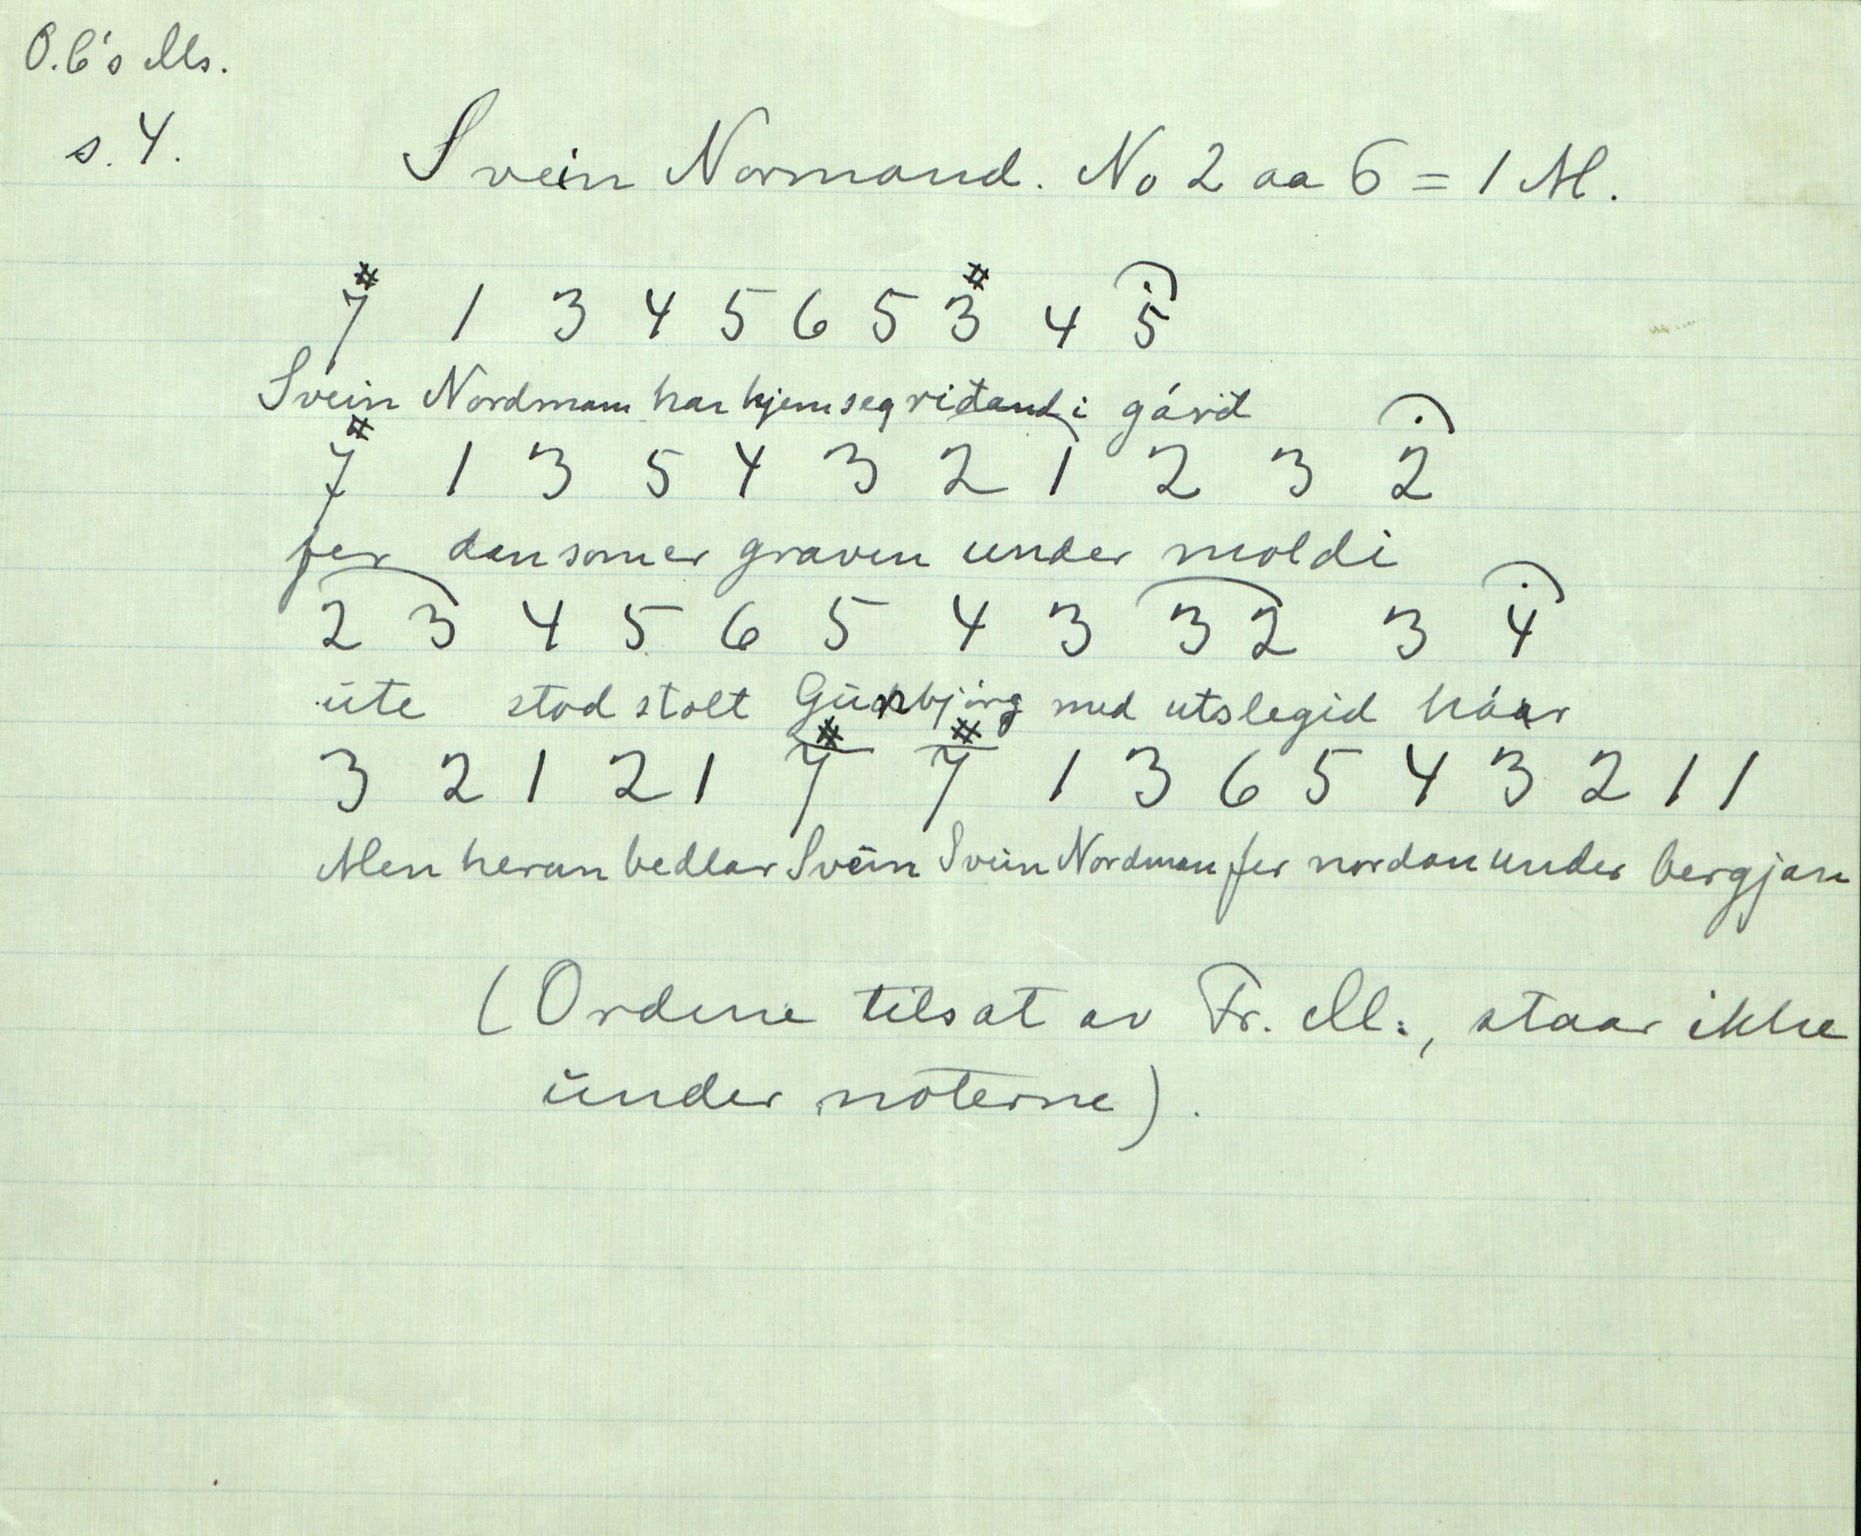 O.C's Ms.
s. 4.
Svein Normand. No 2 aa 6 = 1 M.
#7 1 3 4 5 6 5 #3 4 5
Svein Nordmann han kjem seg riđand i gárđ
#7 1 3 5 4 3 2 1 2 3 2
fer dan som er graven under moldi
2 3 4 5 6 5 4 3 3 2 3 4
ute stod stolt Gunbjórg med utslegid háar
3 2 1 2 1 #7 #7 1 3 6 5 4 3 2 1 1
Men heran bedlar Svein Svein Nordman fer nordan under bergjan
(Ordene tilsat av Fr. M., staar ikke
under noterne).